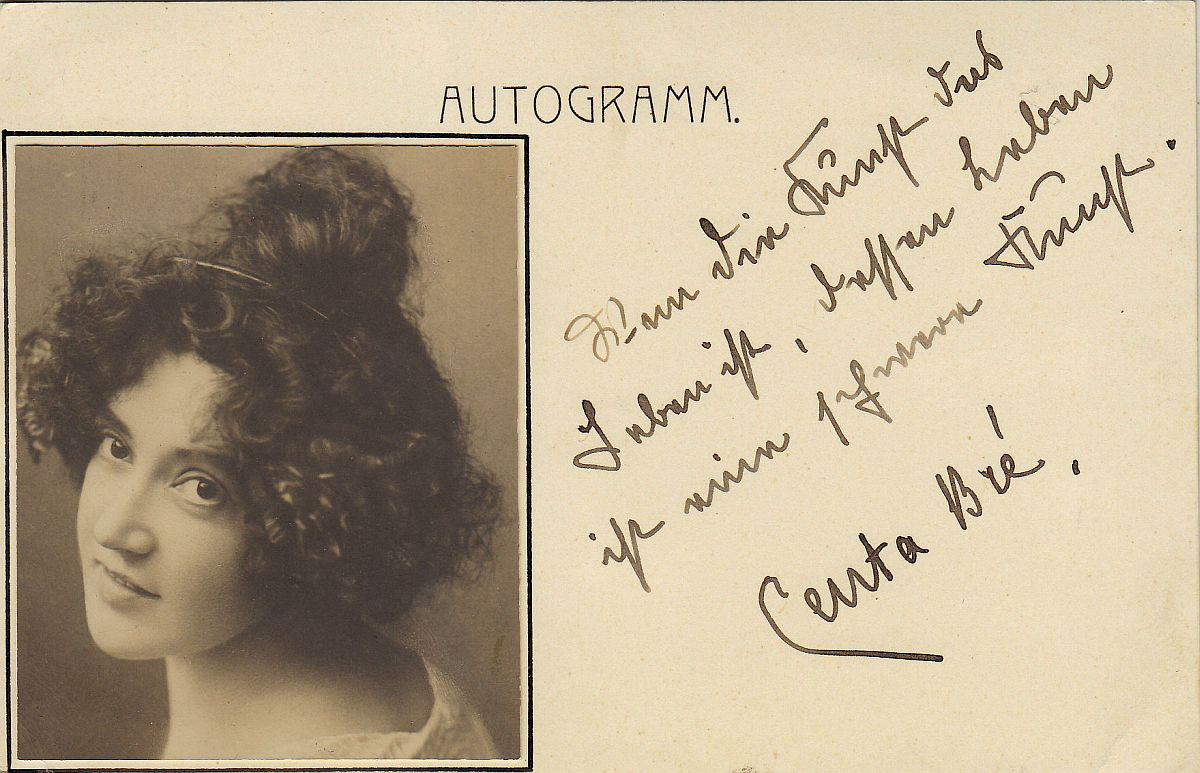 AUTOGRAMM.
Wem die Kunst das
Leben ist, dessen Leben
ist eine schwere Kunst.
Bré.